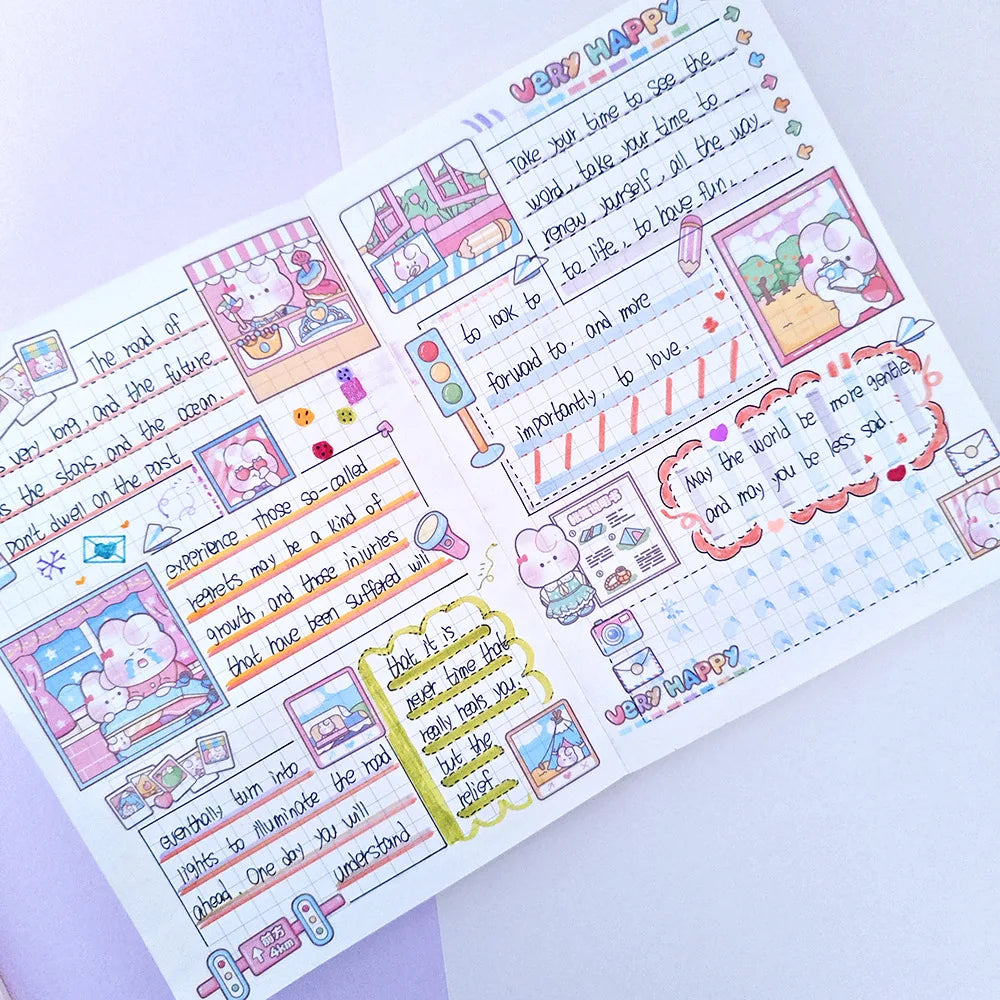 The road of
very long, and the future
the stars, and the ocean.
Don't dwell on the past
experience. Those so-called
regrets may be a kind of
growth, and those injuries
that have been suffered will
eventhally turn into
lights to illuminate the road
ahead. One day you will
understand
↑前方
4km
that it is
never time that
really heals you.
but the
relief.
VERY HAPPY
Take your time to see the
word, take your time to
renew yourself, all the way
to life, to have fun.
to look to
forward to, and more
importantly, to love.
May the world be more gentle,
and may you be less sad.
VERY HAPPY